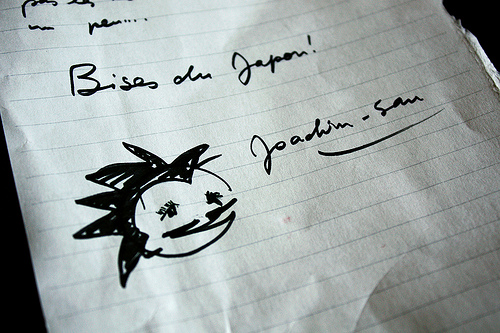 pas les
un peu....
Bises du Japon!
Joachim-san